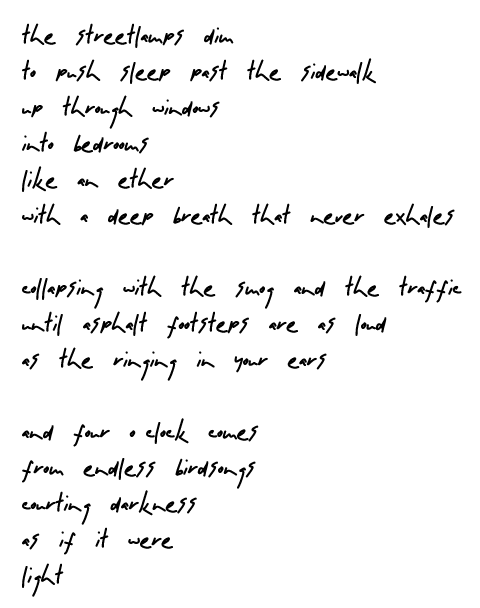 the streetlamps dim
to push sleep past the sidewalk
up through windows
into bedrooms
like an ether
with a deep breath that never exhales

collapsing with the smog and the traffic
until asphalt footsteps are as loud
as the ringing in your ears

and four o clock comes
from endless birdsongs
courting darkness
as if it were
light